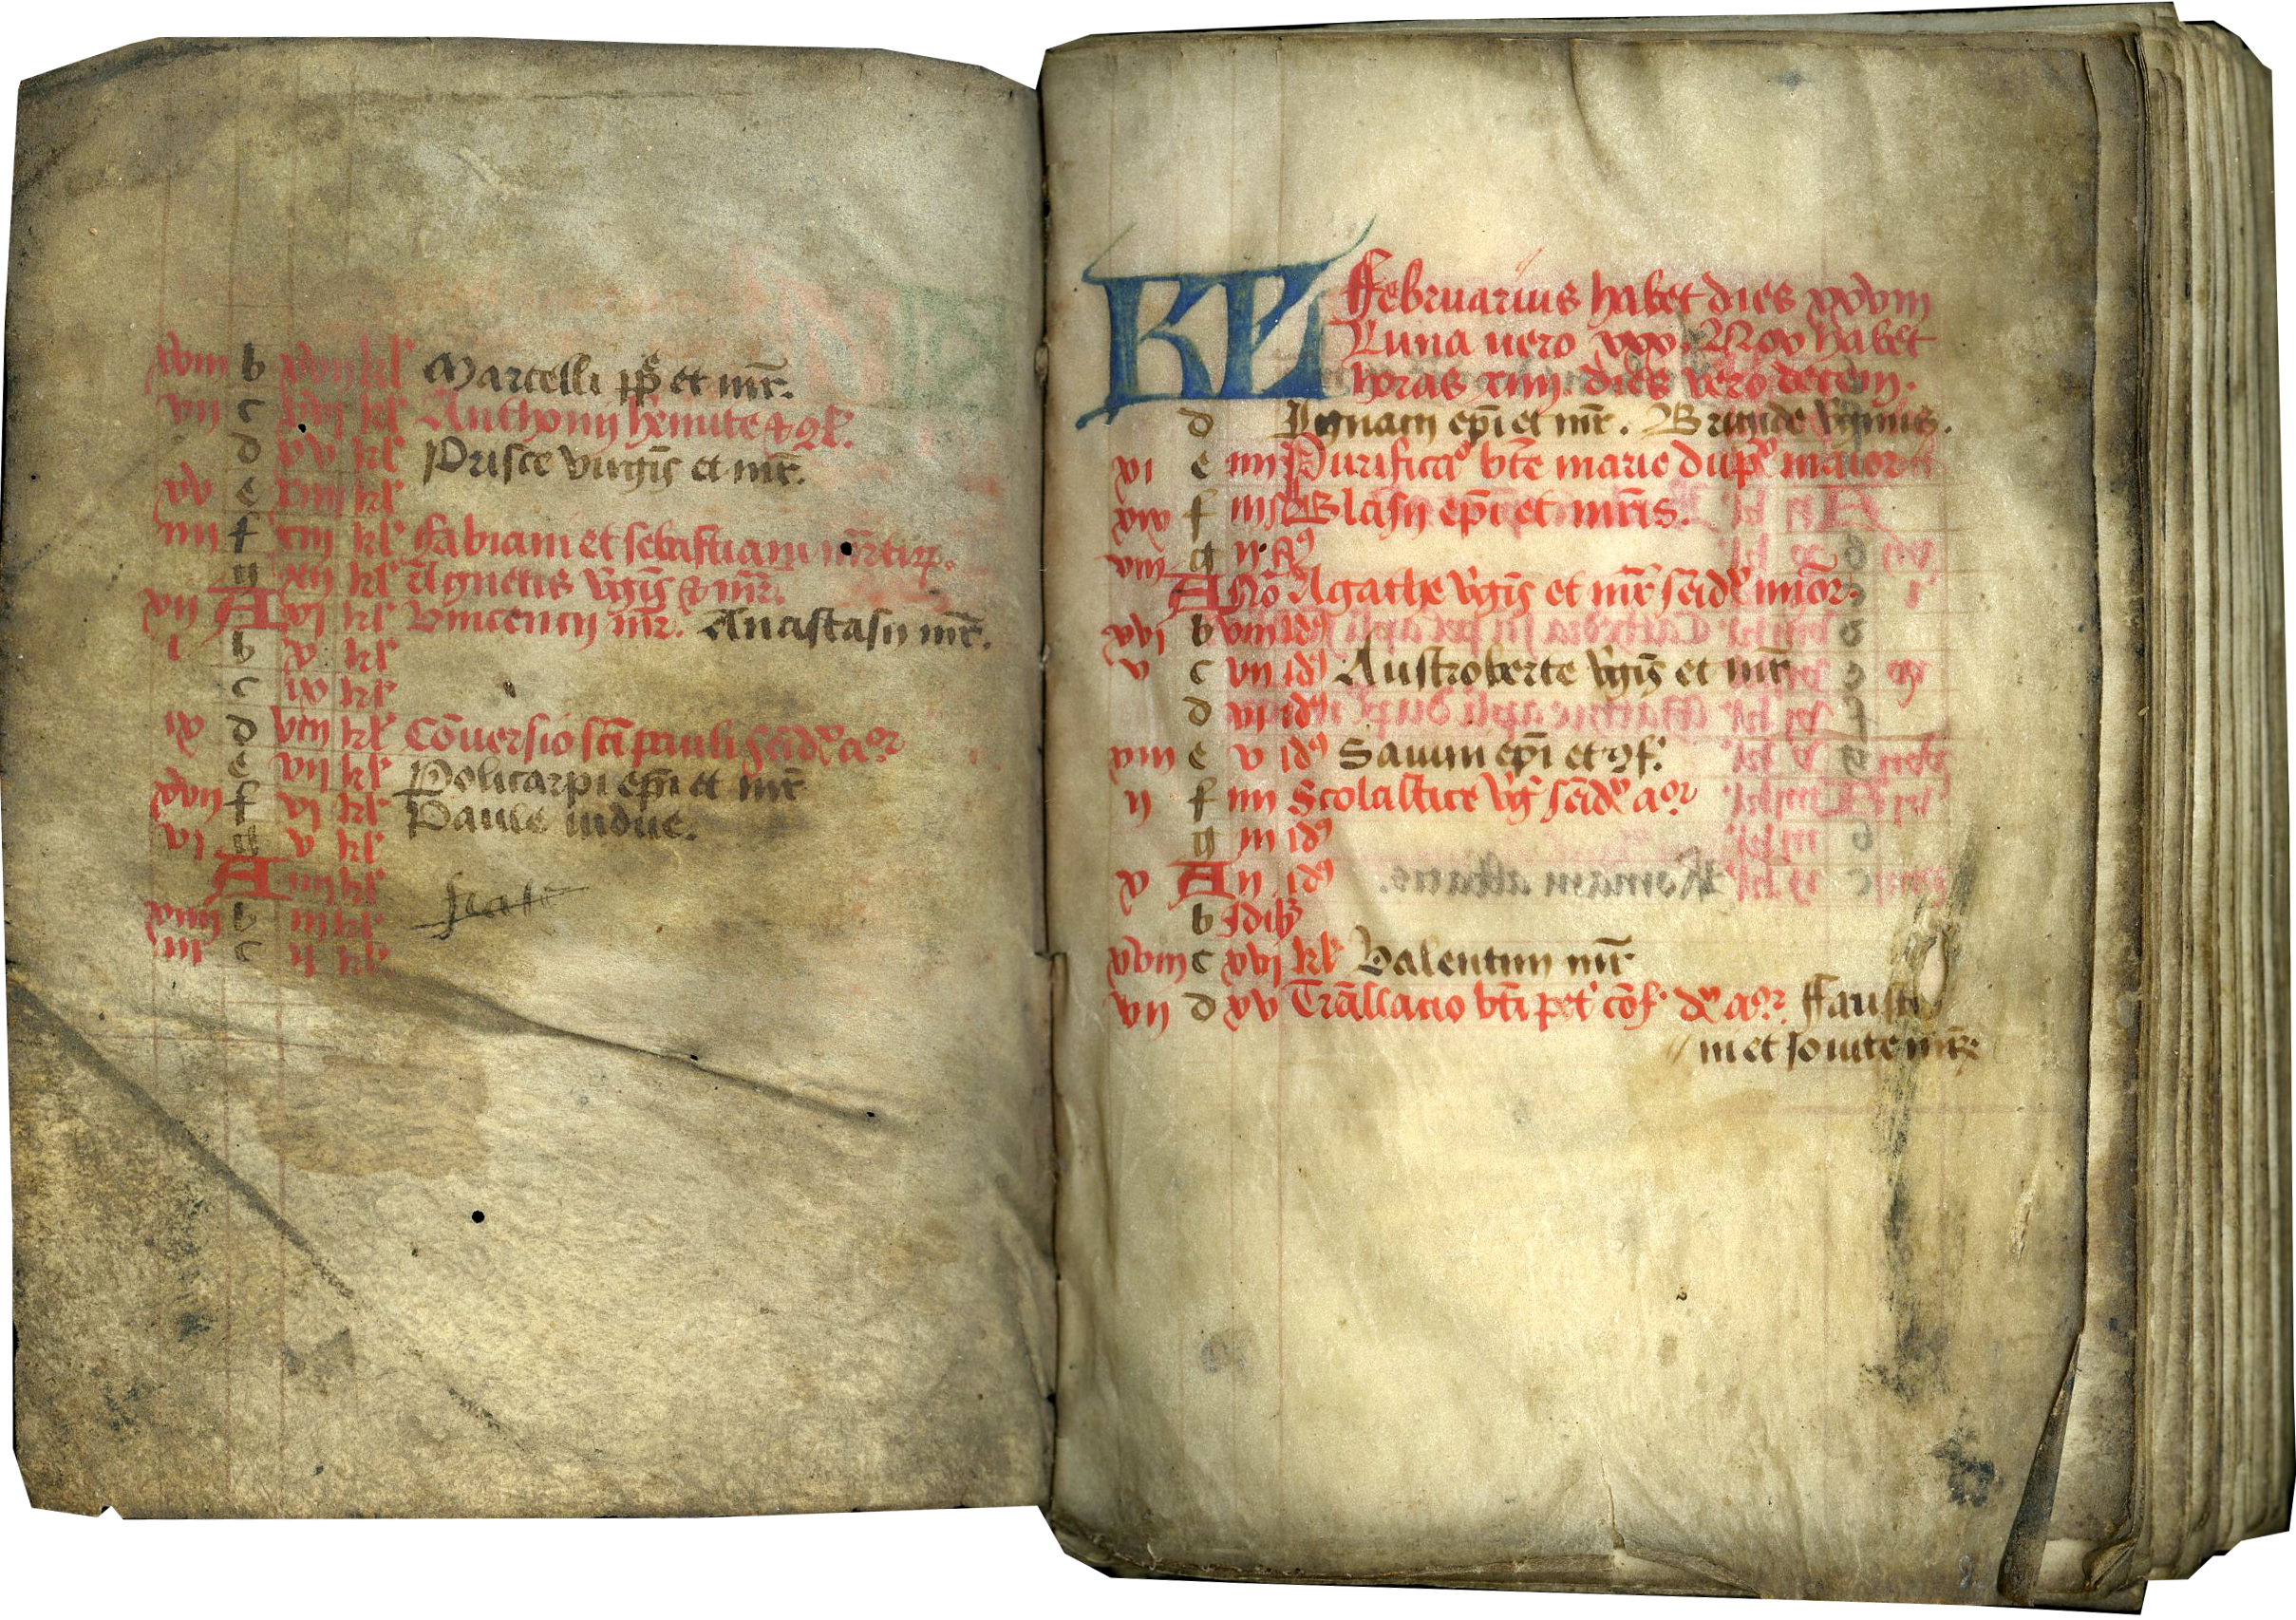 xviii b xvii kl' Marcelli pp̄ et mr̄.
vii c xvi kl' Anthonii hēmite & 9f.
d xv kl' Prisce virgīs et mr̄.
xv e xiiii kl'
iiii f xiii kl' Fabiani et sebastiani mr̄tirū.
g xii kl' Agnetis v'gīs & mr̄.
xii A xi kl' Vincencii mr̄. Anastasii mr̄.
i b x kl'
c ix kl'
ix d viii kl' Cōversio sc̄i pauli sc̄d' a9r
e vii kl' Policarpi ep̄i et mr̄
xvii f vi kl' Paule vidue.
vi g v kl'
A iiii kl'
xiiii b iii kl'
iii c ii kl'
KL Februarius habet dies xxviii
Luna vero xxx. Nox habet
horas xiiii. dies vero decem.
d Ignacii ep̄i et mr̄. Brigide v'ginis.
xi e iiii Purifica° bt̄e marie dup' maior
xix f iii Blasii ep̄i et mr̄is.
viii g ii
A nō Agathe v'gīs et mr̄ sc̄d' minor.
xvi b viii id9
v c vii id9 Austroberte v'gīs et mr̄
d vi id9
xiii e v id9 Savini ep̄i et 9f.
ii f iiii Scolastice v'g' sc̄d' a9r
g iii id9
x A ii id9
b Idib3
xviii c xvi kl' Valentini mr̄
vii d xv Trāslacio bt̄i pet' cōf. d' a9r. Fausti
ni et iovite mr̄